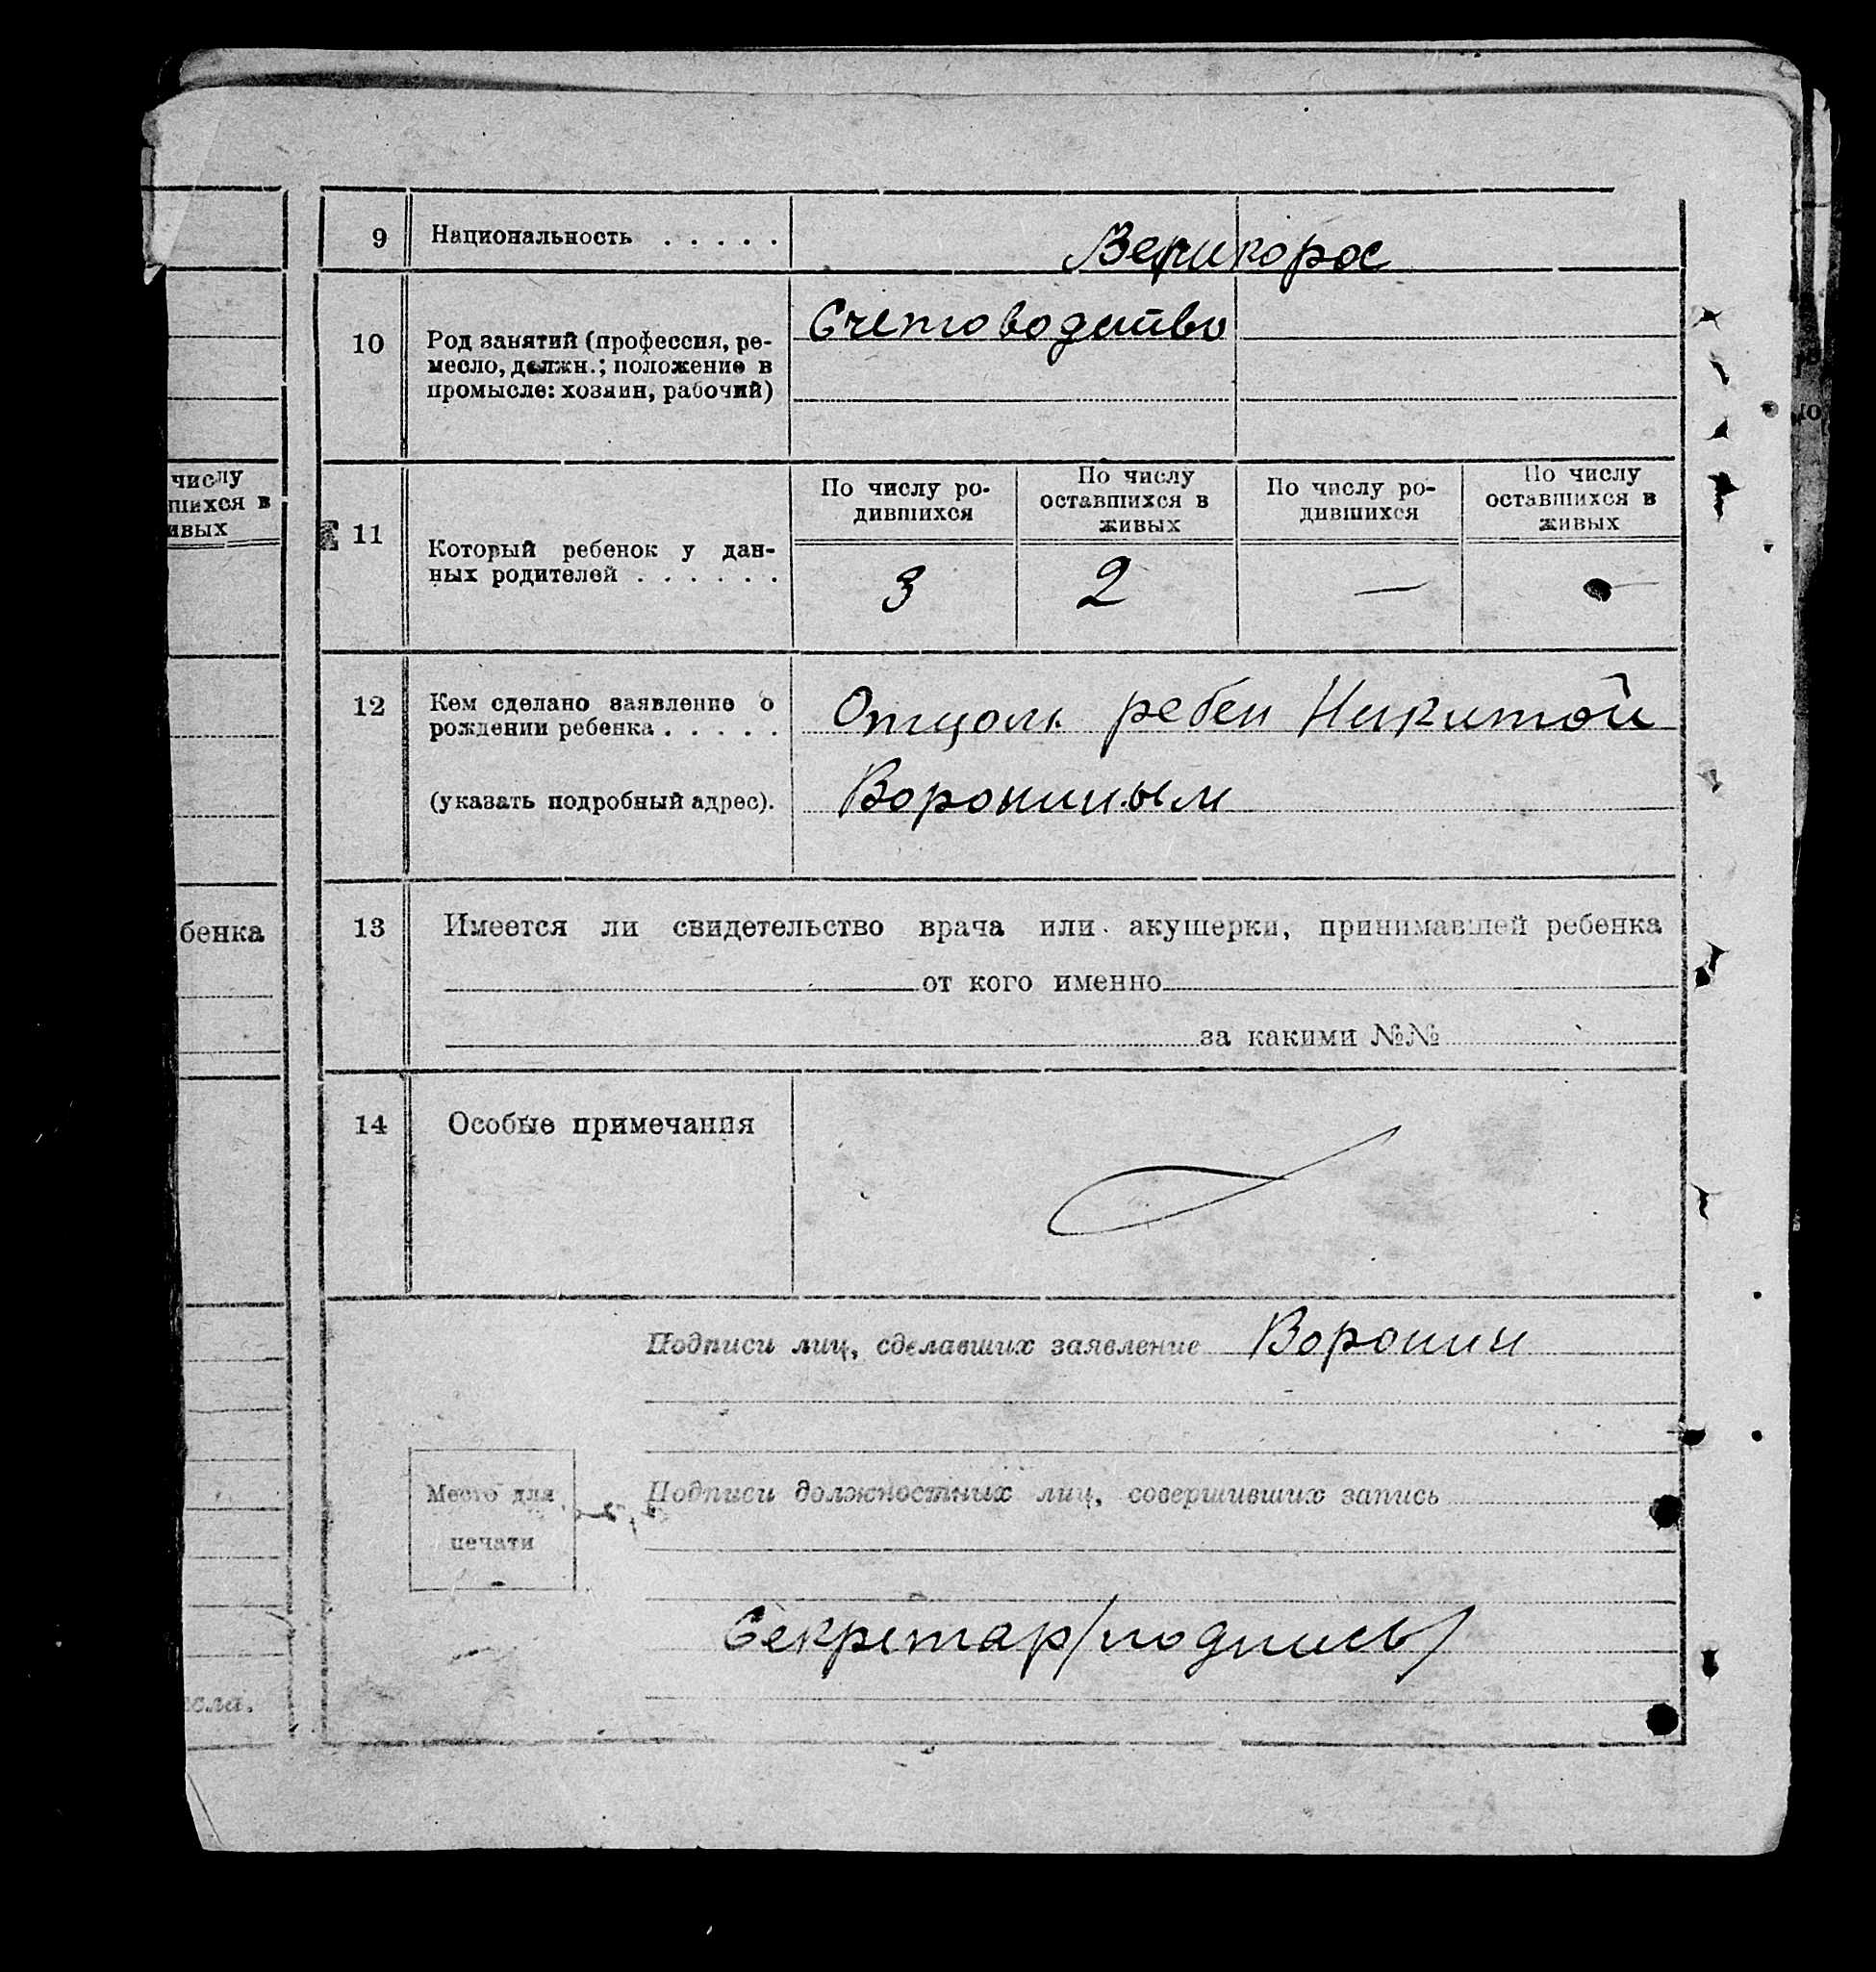 9 Национальность . . . . . Великорос
10 Род занятий (профессия, ре-
месло, должн.; положение в
промысле: хозяин, рабочий)
Счетоводство
числу
шихся в
ивых
11 Который ребенок у дан-
ных родителей . . . . . .
По числу ро-
дившихся
По числу
оставшихся в
живых
По числу ро-
дившихся
По числу
оставшихся в
живых
3 2 — —
12 Кем сделано заявление о
рождении ребенка . . . . .
(указать подробный адрес).
Отцом ребен Никитой
Ворониным
бенка
13 Имеется ли свидетельство врача или акушерки, принимавшей ребенка
от кого именно
за какими №№
14 Особые примечания
Подписи лиц, сделавших заявление Воронин
Место для
печати
Подписи должностных лиц, совершивших запись
Секретар/подпись/